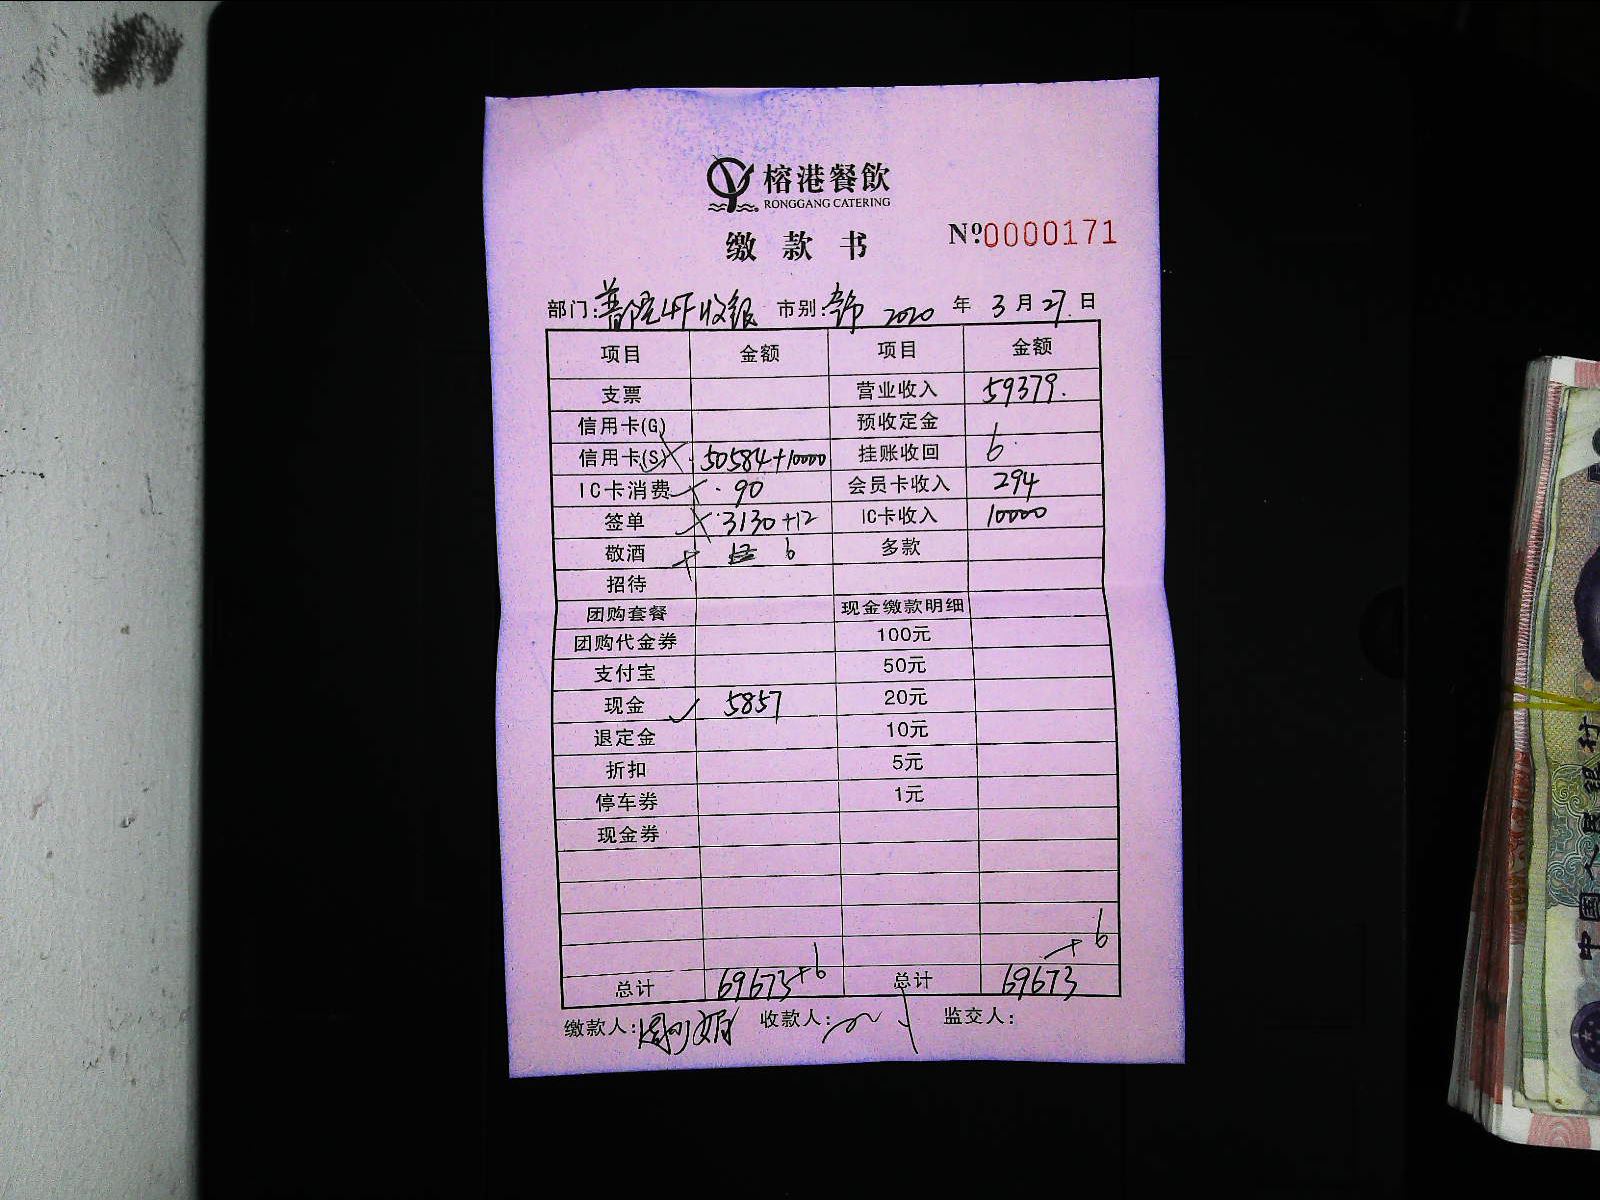 榕港餐飲
RONGGANG CATERING
缴款书
№0000171
部门:普院4F收银 市别: 2020年3月27日
项目 金额 项目 金额
支票 营业收入 59379.
信用卡(G) 预收定金
信用卡(S) 50584+10000 挂账收回 6
IC卡消费 90 会员卡收入 294
签单 3130+12 IC卡收入 10000
敬酒 6 多款
招待
团购套餐 现金缴款明细
团购代金券 100元
支付宝 50元
现金 5857 20元
退定金 10元
折扣 5元
停车券 1元
现金券
+6
总计 69673+6 总计 69673
缴款人: 收款人: 监交人:
中国人民银行